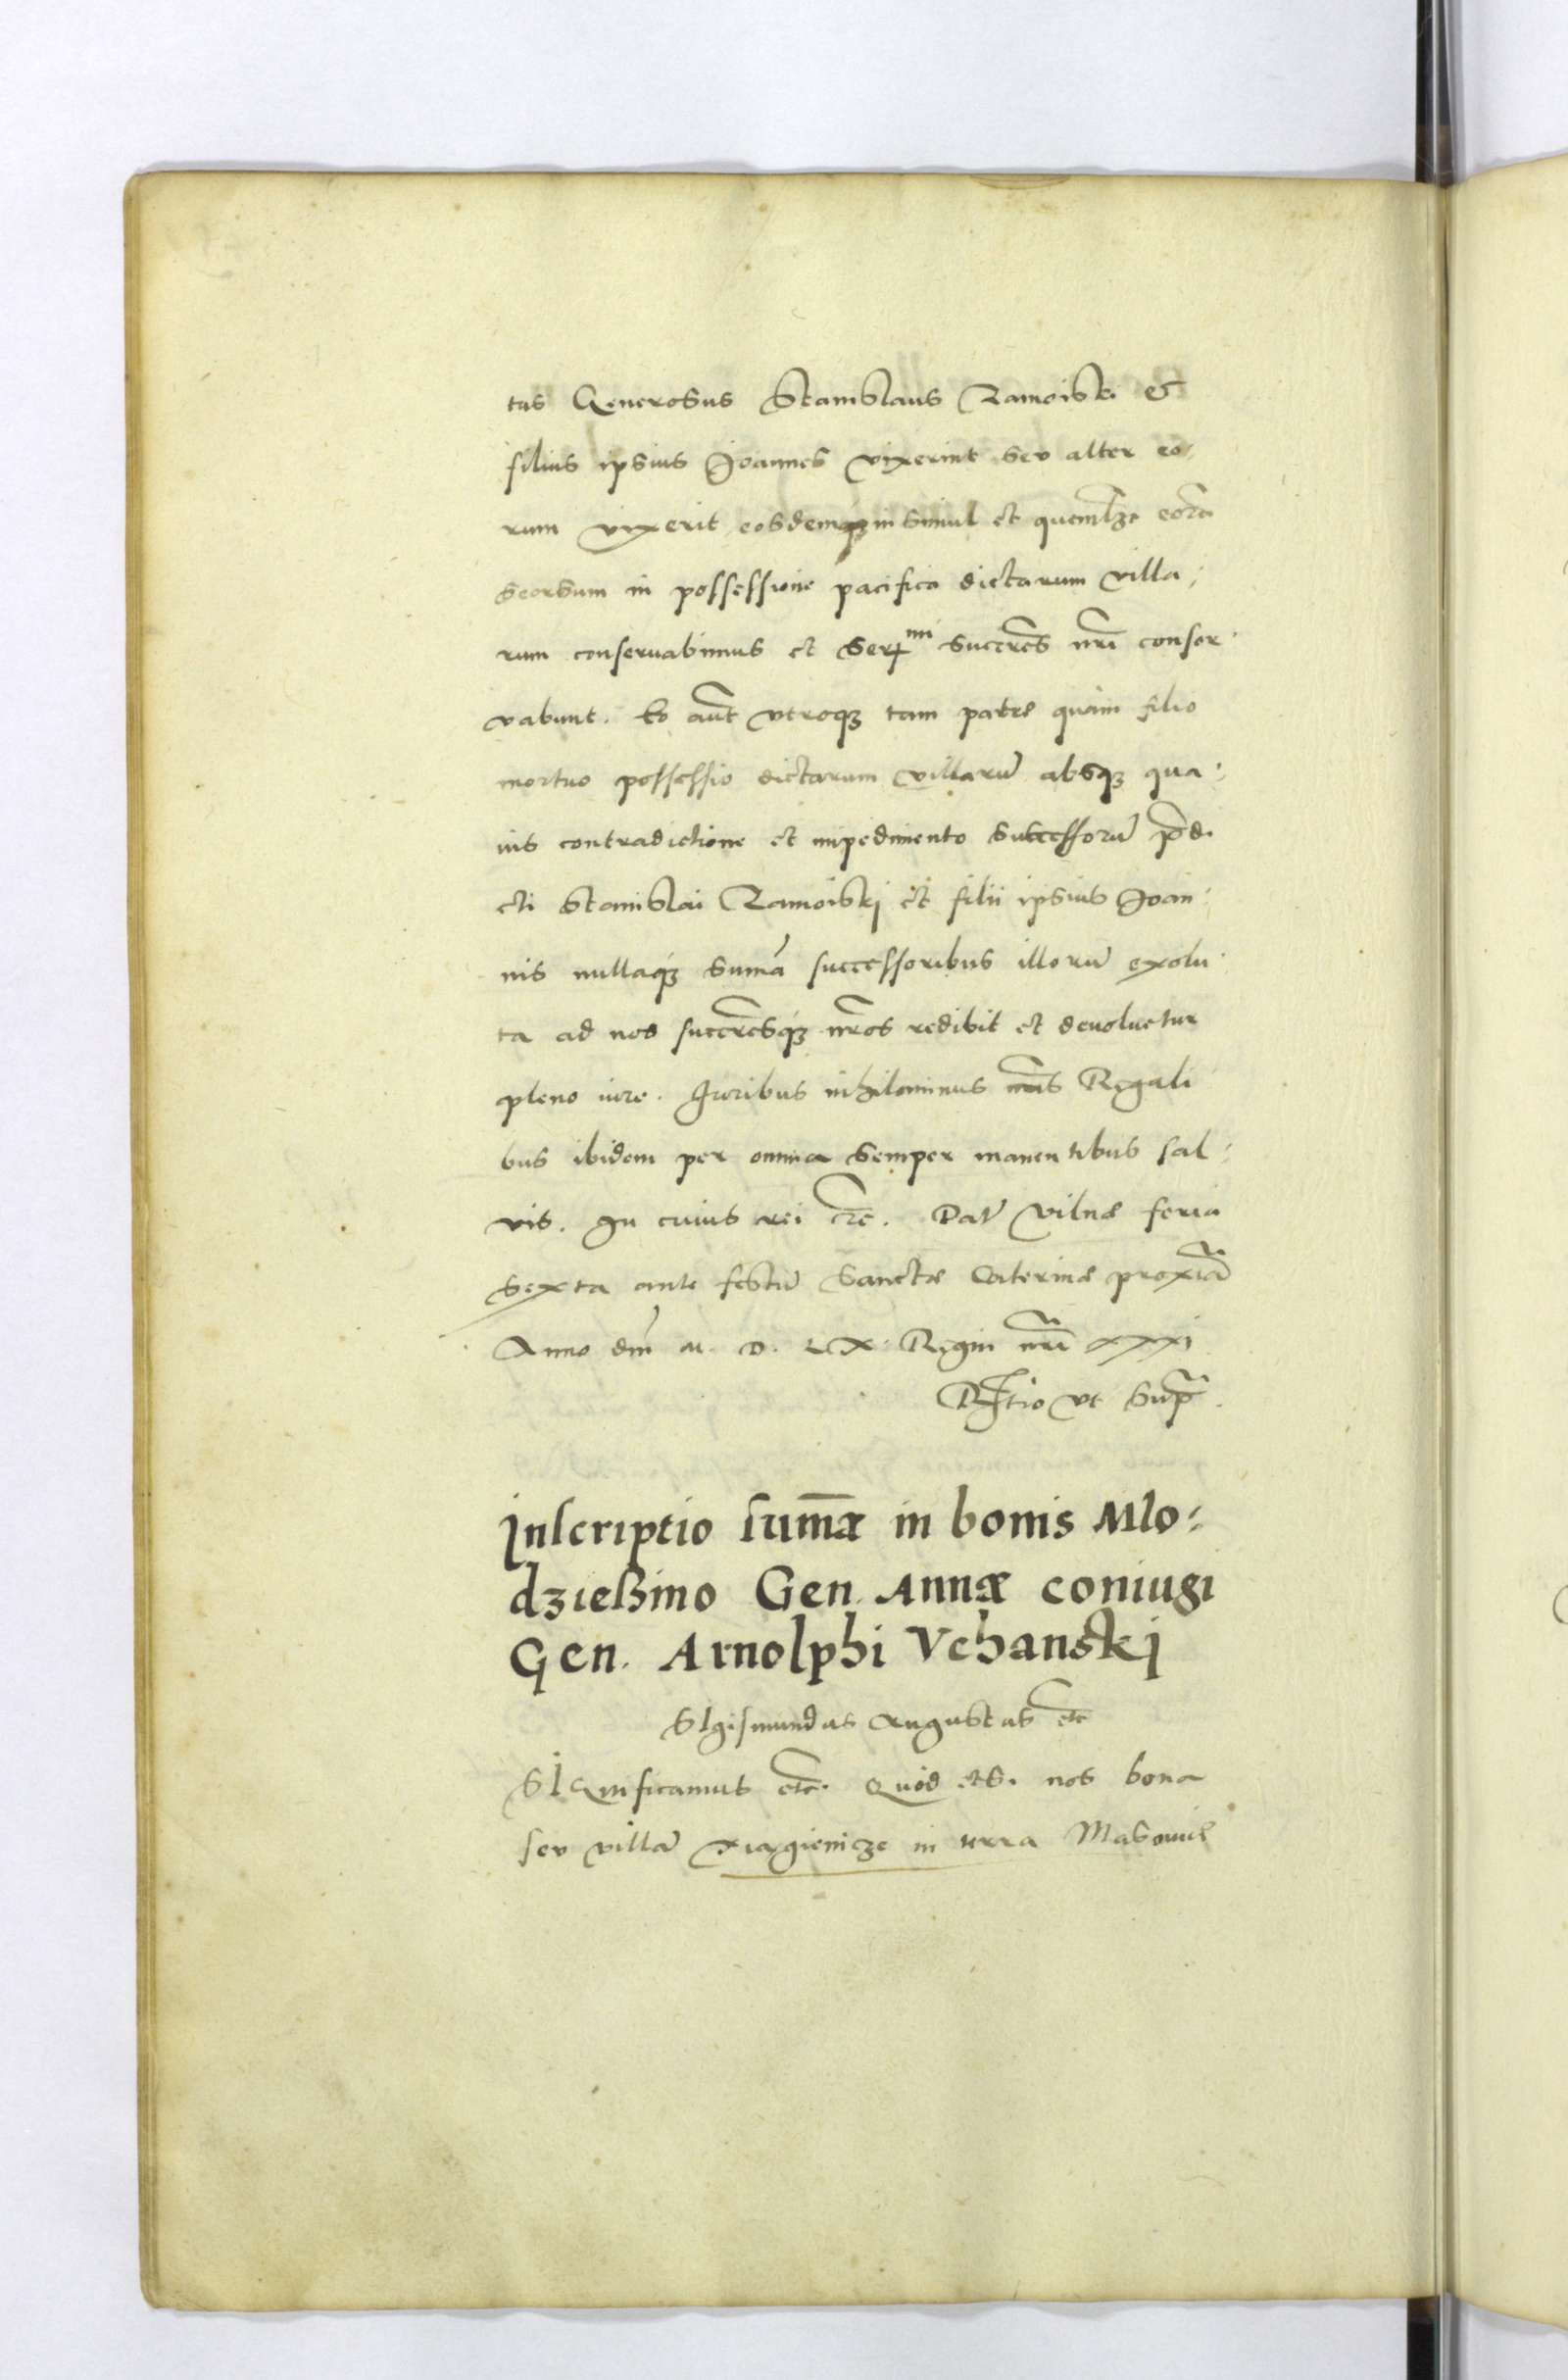 tus Generosus Stanislaus Zamoiski et
filius ipsius Joannes vixerint seu alter eo-
rum vixerit eosdemq insimul et quemlꝫ eorũ
seorsum in possessione pacifica dictarum villa-
rum conseruabimus et Sermi succrẽs nrĩ conser-
vabunt. Eo aũt vtroqꝫ tam patre quàm filio
mortuo possessio dictarum villarũ absqꝫ qua-
uis contradictione et impedimento successorũ p̃di-
cti Stanislai Zamoiskj et filii ipsius Joan-
nis nullaqꝫ sumã successoribus illorũ exolu-
ta ad nos succrẽsqꝫ nrõs redibit et deuoluetur
pleno iure. Juribus nihilominus nrĩs Regali
bus ibidem per omnia semper manentibus sal-
vis. In cuius rei etc̃. Dat̃ Vilnæ feria
sexta ante festũ Sanctæ Caterinæ proxiã
Anno dnĩ M. D. LX. Regni nrĩ xxxi
Rtio vt sup̃.
Inscriptio sum̃æ in bonis Mlo-
dzießino Gen. Annæ coniugi
Gen. Arnolphi Vchanskj
SIgismundus Augustus etc̃
SIGnificamus etc̃. Quòd etsi nos bona
seu villã in terra Masouiæ